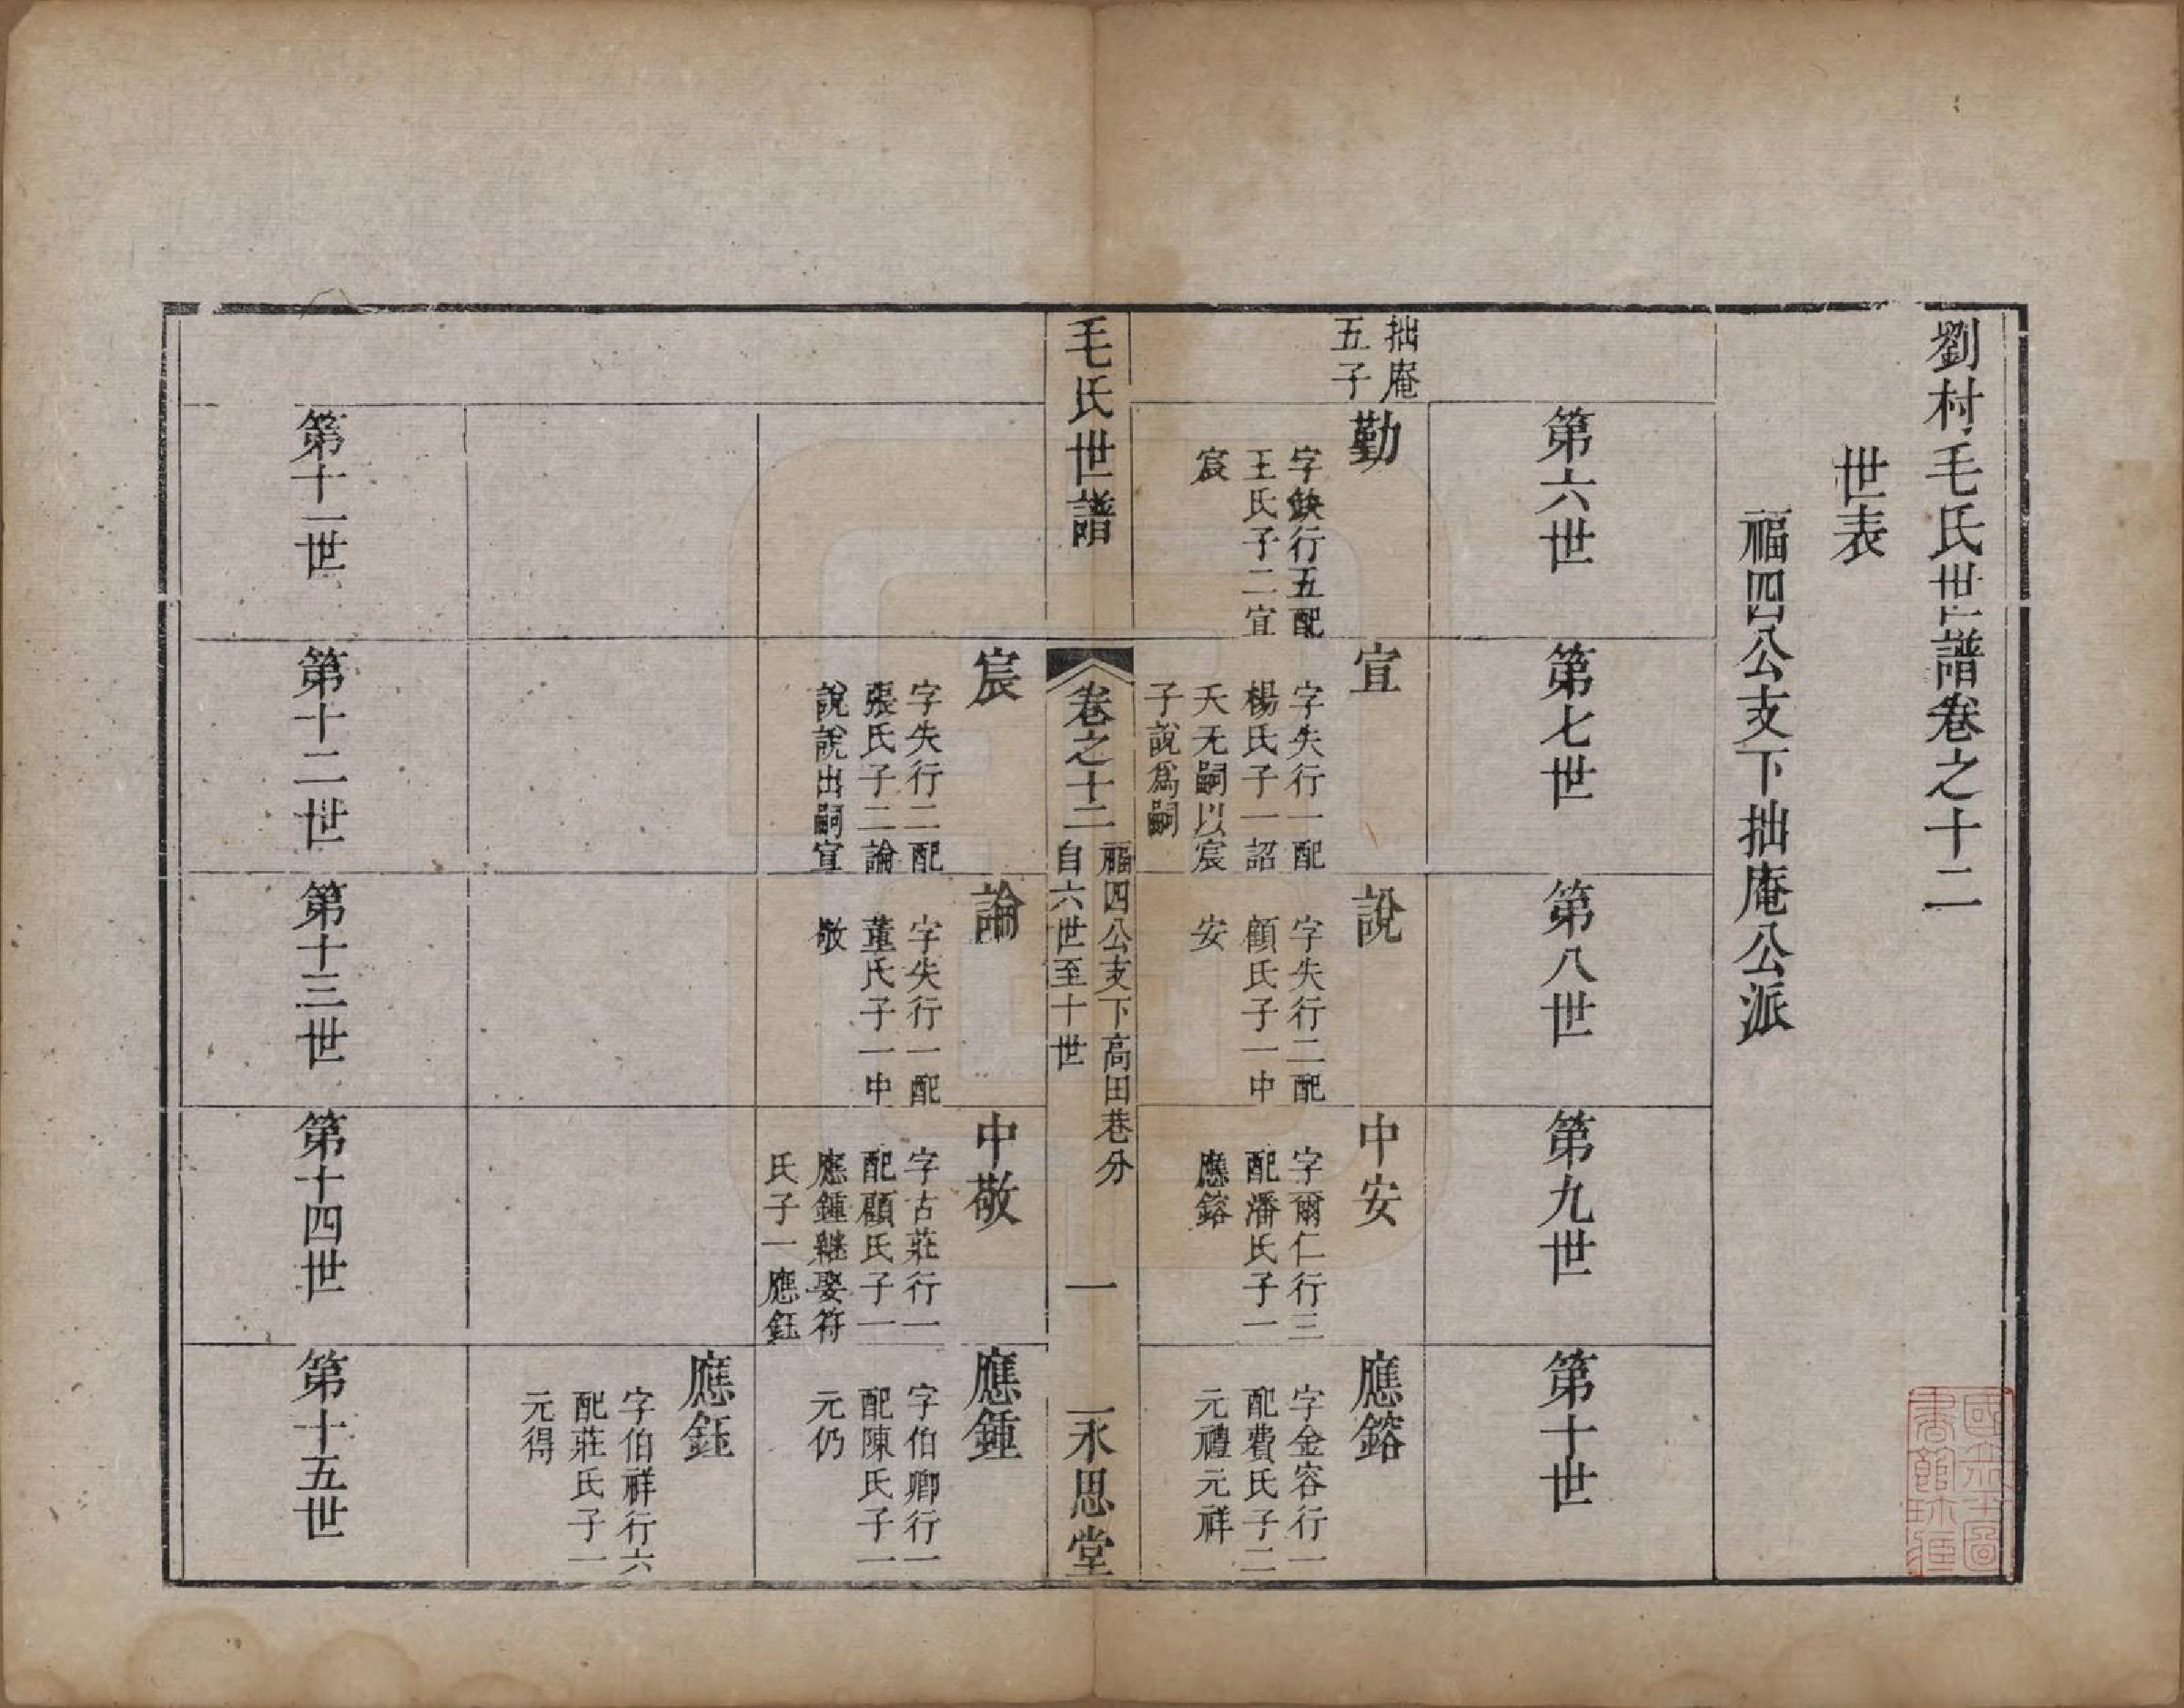 劉村毛氏世譜卷之十二
世表
福四公支下拙庵公派
第六世
第七世
第八世
第九世
第十世
拙庵
五子
勤
字缺行五配
王氏子二宣
宸
宣
字失行一配
楊氏子一詔
夭无嗣以宸
子說為嗣
說
字失行二配
顧氏子一中
安
中安
字爾仁行三
配潘氏子一
應鎔
應鎔
字金容行一
配費氏子二
元禮元祥
毛氏世譜
卷之十二
福四公支下高田巷分
自六世至十世
一
永思堂
宸
字失行二配
張氏子二論
說說出嗣宣
論
字失行一配
董氏子一中
敬
中敬
字古莊行一
配顧氏子一
應鍾繼娶符
氏子一應鈺
應鍾
字伯卿行一
配陳氏子一
元仍
應鈺
字伯祥行六
配莊氏子一
元得
第十一世
第十二世
第十三世
第十四世
第十五世
國立北平圖
書館珍藏